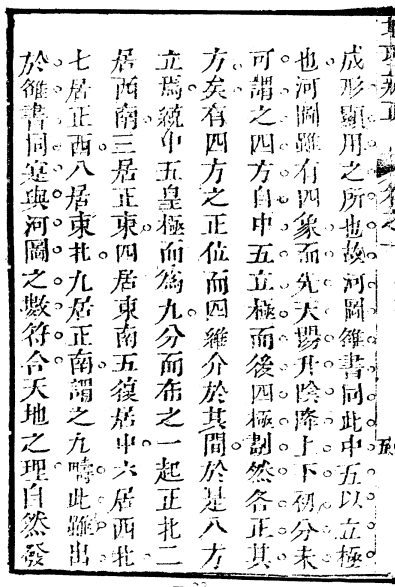 成形顯用之所也故河圖雒書同此中五以立極
也河圖雖有四象而先天陽升陰降上下初分未
可謂之四方自中五立極而後四極劃然各正其
方矣有四方之正位而四維介於其間於是八方
立焉統中五皇極而為九分而布之一起正北二
居西南三居正東四居東南五復居中六居西北
七居正西八居東北九居正南謂之九疇此雖出
於雒書同寔與河圖之數符合天地之理自然發